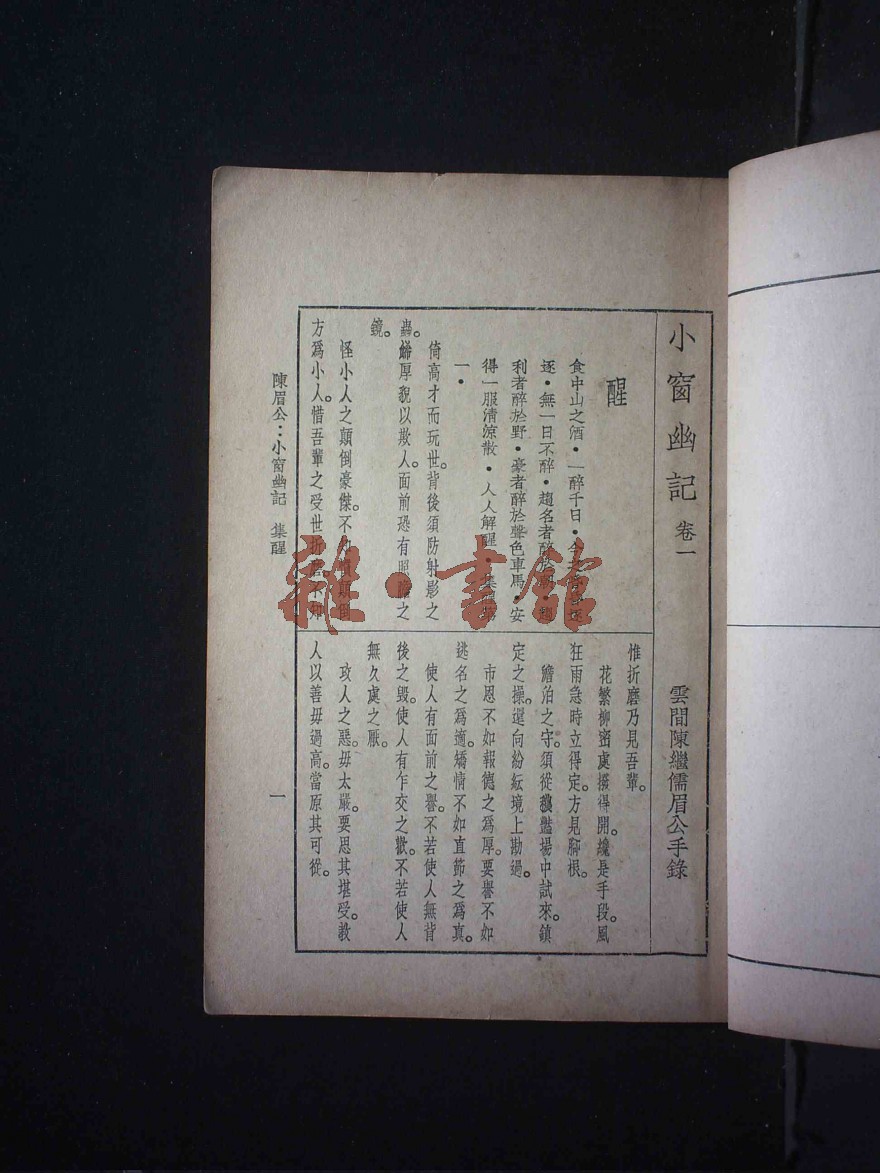 小窗幽記 卷一
雲間陳繼儒眉公手錄
醒
食中山之酒・一醉千日・今之昏昏逐
逐・無一日不醉・趨名者醉於朝・趨
利者醉於野・豪者醉於聲色車馬・安
得一服清涼散・人人解醒・集醒第
一・
倚高才而玩世。背後須防射影之
蟲。飾厚貌以欺人。面前恐有照膽之
鏡。
怪小人之顛倒豪傑。不知慣顛倒
方爲小人。惜吾輩之受世折磨。不知
惟折磨乃見吾輩。
花繁柳密處撥得開。纔是手段。風
狂雨急時立得定。方見腳根。
澹泊之守。須從穠豔場中試來。鎮
定之操。還向紛紜境上勘過。
市恩不如報德之爲厚。要譽不如
逃名之爲適。矯情不如直節之爲真。
使人有面前之譽。不若使人無背
後之毀。使人有乍交之歡。不若使人
無久處之厭。
攻人之惡。毋太嚴。要思其堪受。教
人以善毋過高。當原其可從。
陳眉公：小窗幽記 集醒
一
雜・書館